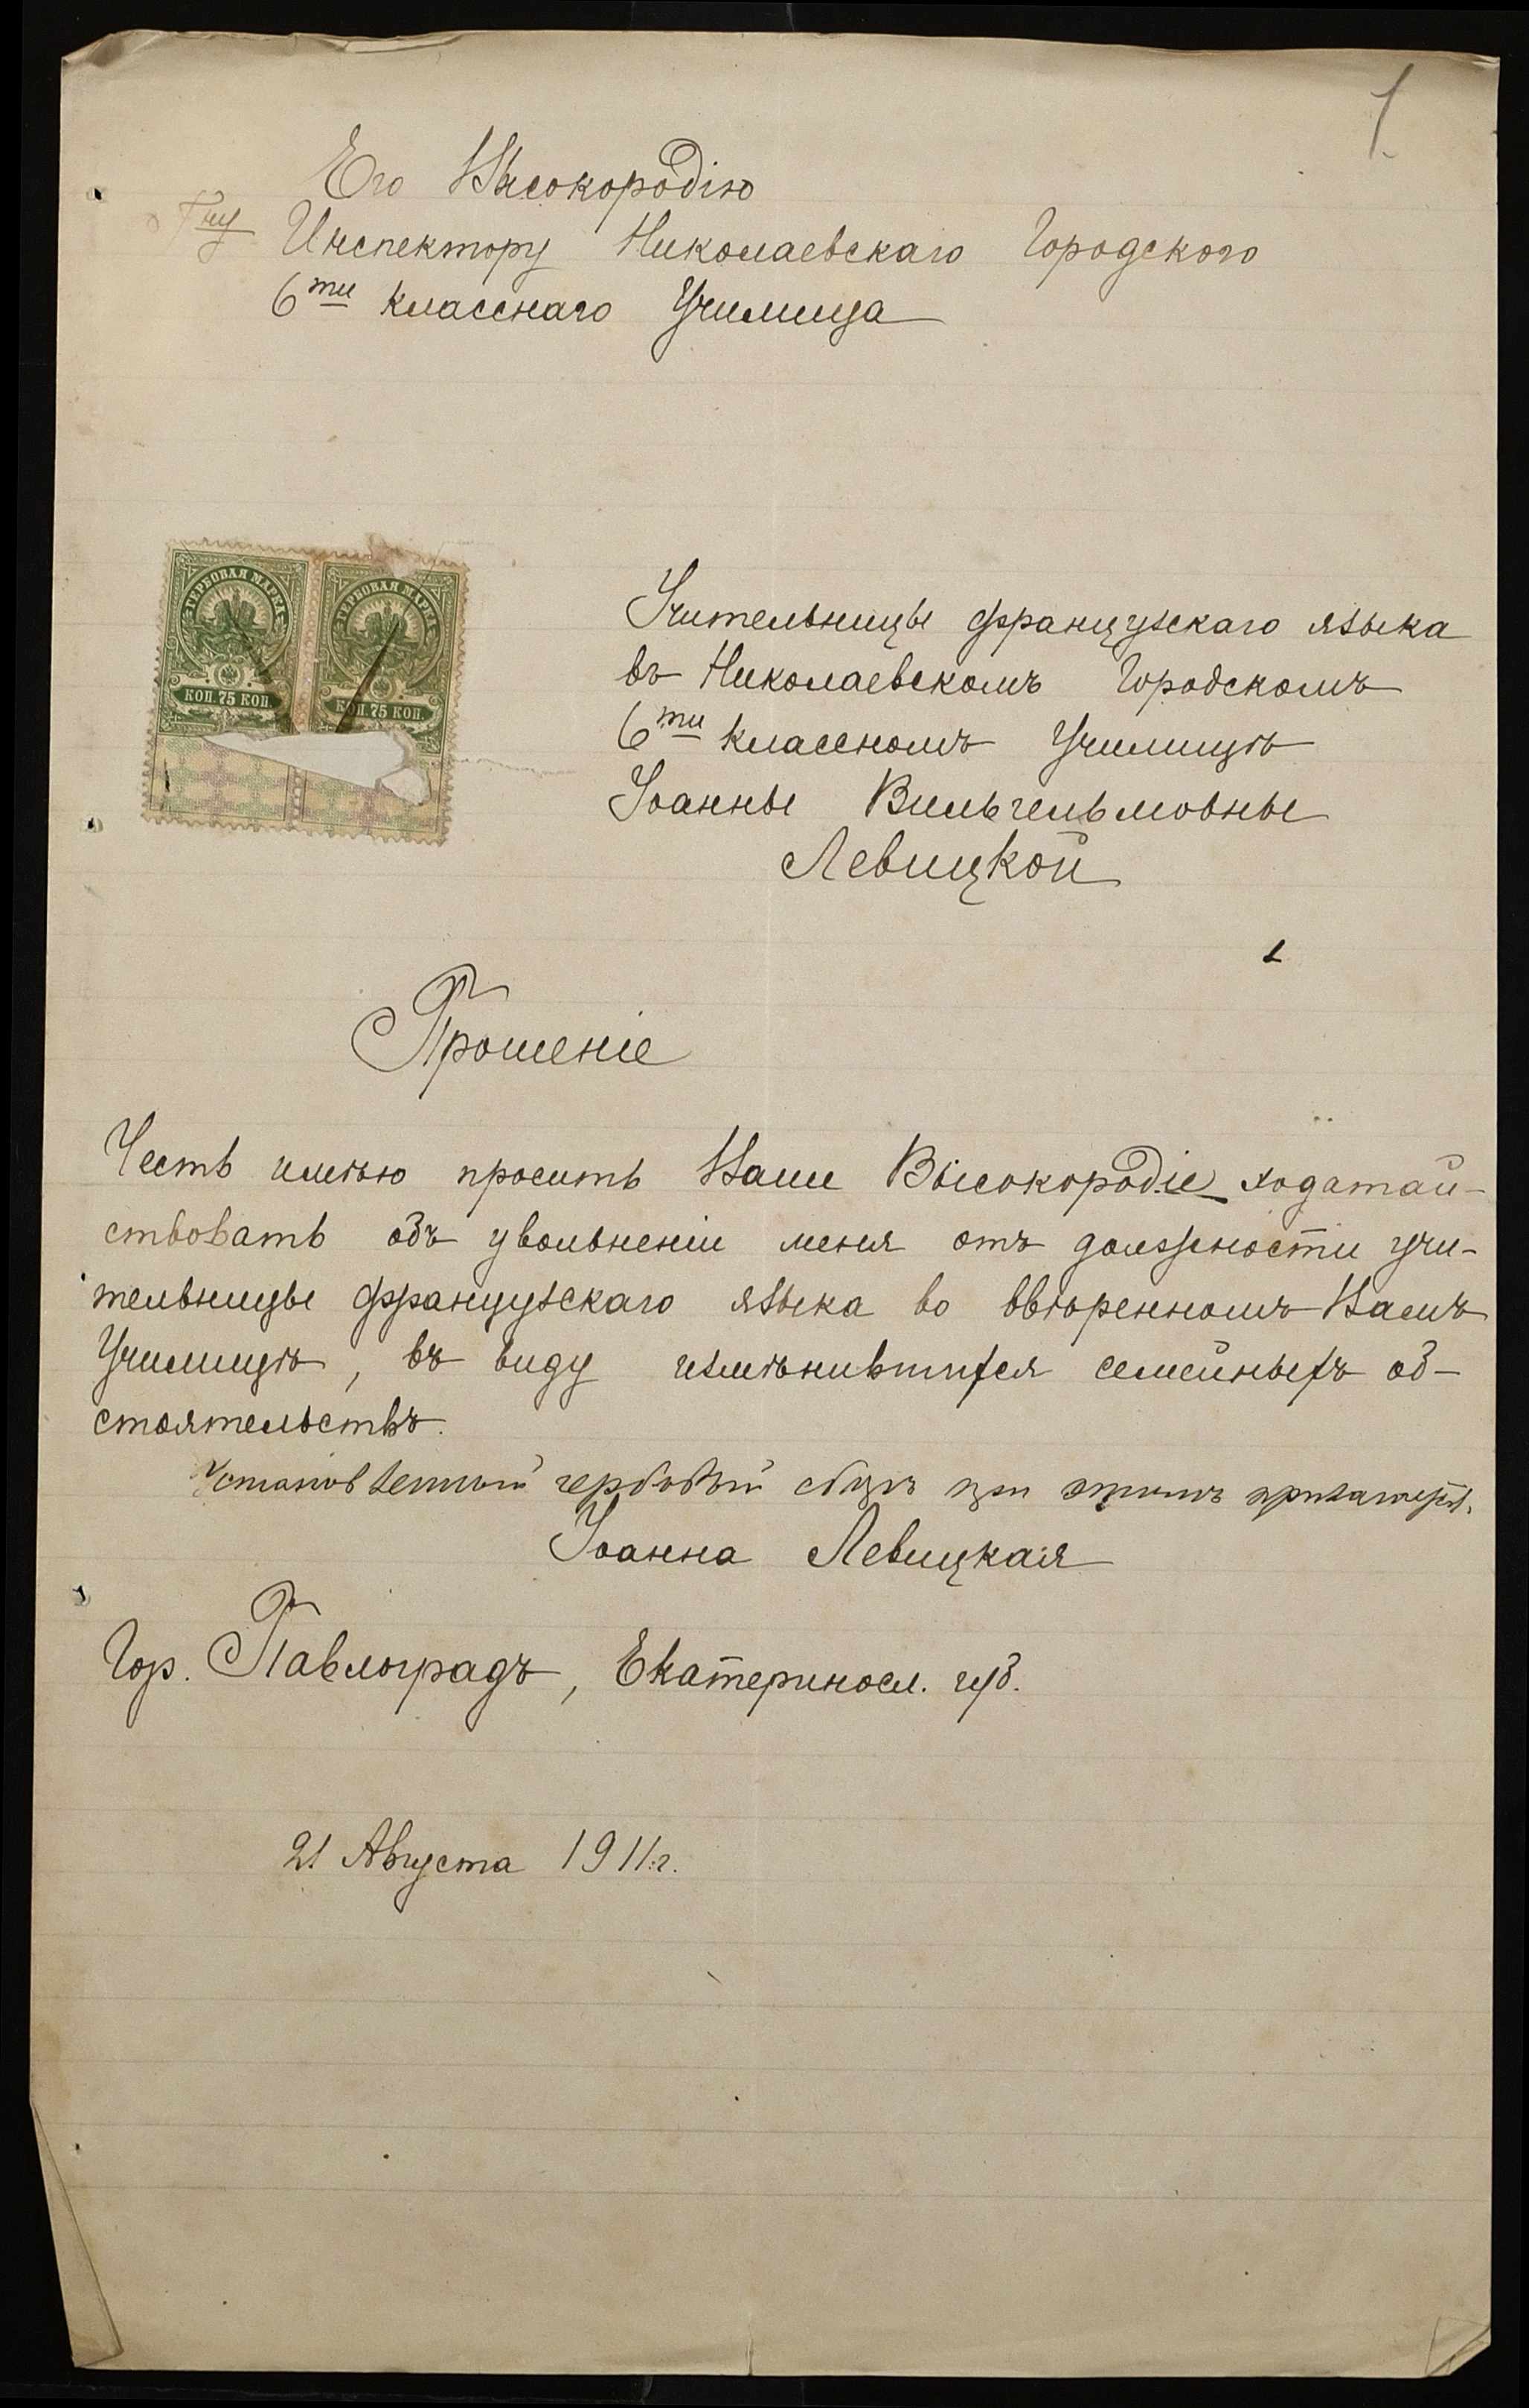 1
Его Высокородію
Г-ну Инспектору Николаевскаго Городского
6ти класснаго Училища
ГЕРБОВАЯ МАРКА ГЕРБОВАЯ МАРКА
КОП. 75 КОП. КОП. 75 КОП.
Учительницы французскаго языка
въ Николаевскомъ Городскомъ
6ти классномъ Училищѣ
Іоанны Вильгельмовны
Левицкой
Прошеніе
Честь имѣю просить Ваше Высокородіе ходатай-
ствовать объ увольненіи меня отъ должности учи-
тельницы французскаго языка во ввѣренномъ Вамъ
Училищѣ, въ виду измѣнившихся семейныхъ об-
стоятельствъ.
Установленный гербовый сборъ при этомъ прилагается.
Іоанна Левицкая
Гор. Павлоградъ, Екатериносл. губ.
21 Августа 1911 г.